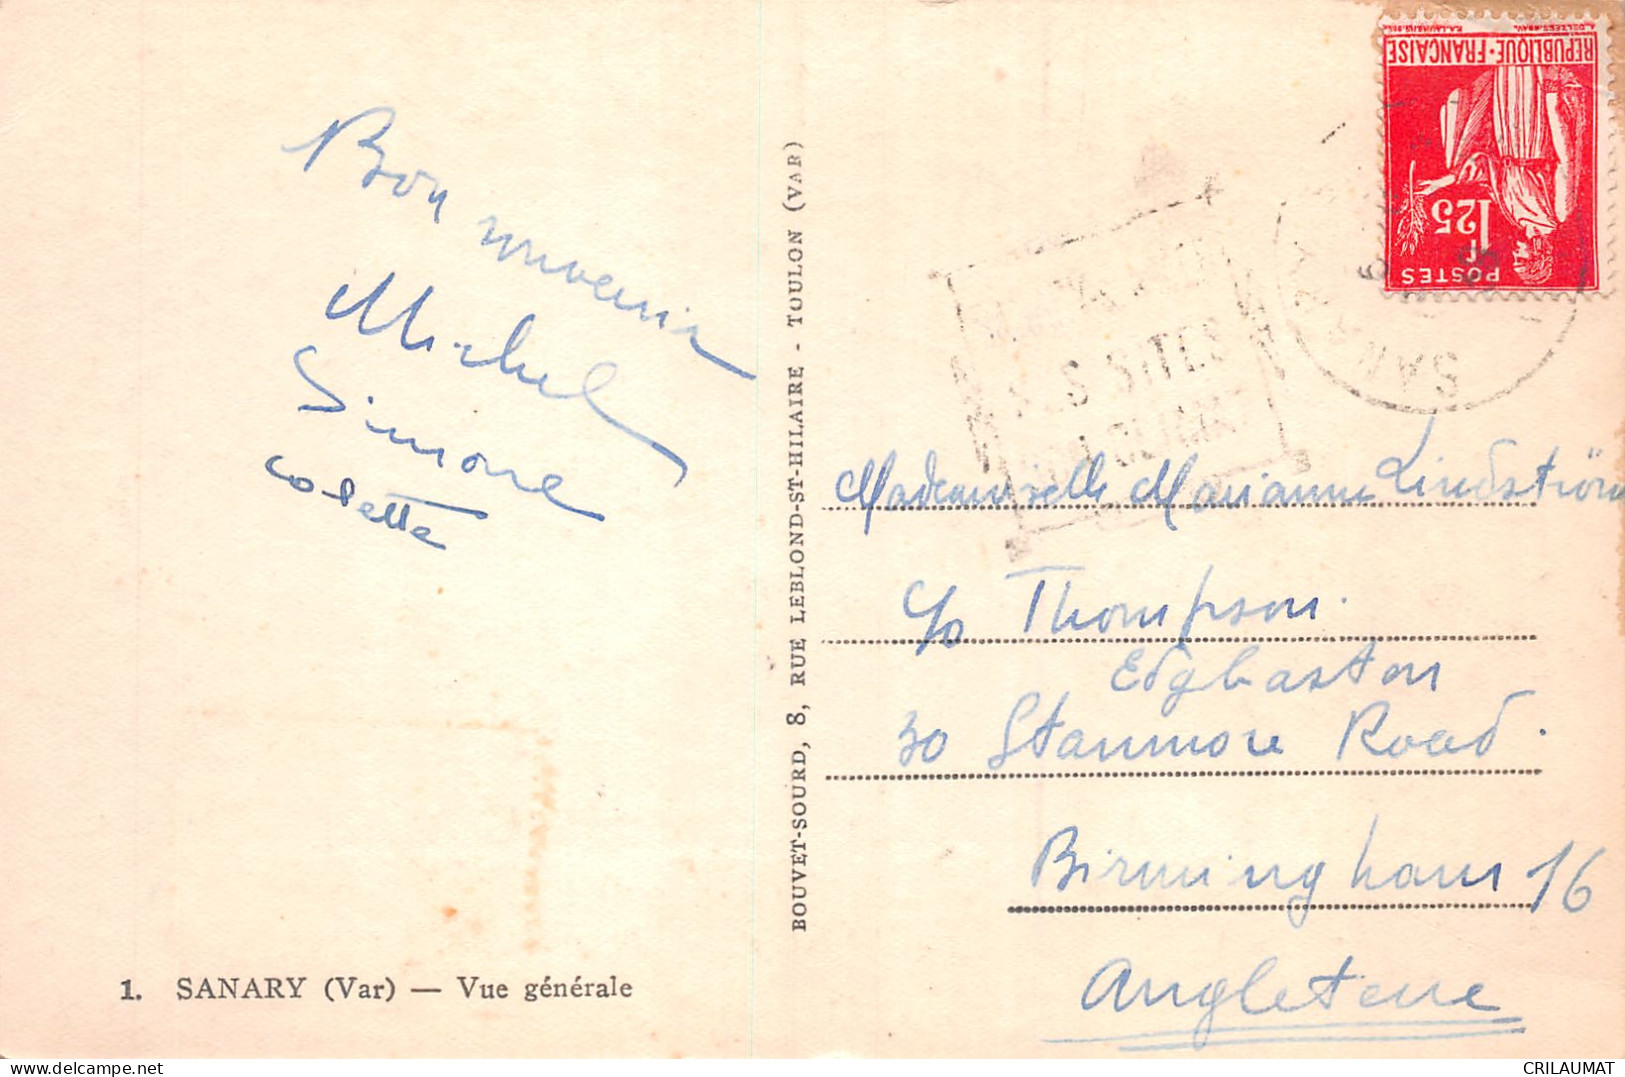 Bon souvenir
Michel
Simone
Colette
1. SANARY (Var) — Vue générale
BOUVET-SOURD, 8, RUE LEBLOND-ST-HILAIRE - TOULON (VAR)
RÉPUBLIQUE·FRANÇAISE
1F25
POSTES
SES SITES
SANARY
Mademoiselle Marianne Lindström
c/o Thompson.
Edgbaston
30 Stanmore Road.
Birmingham 16
Angleterre
CRILAUMAT